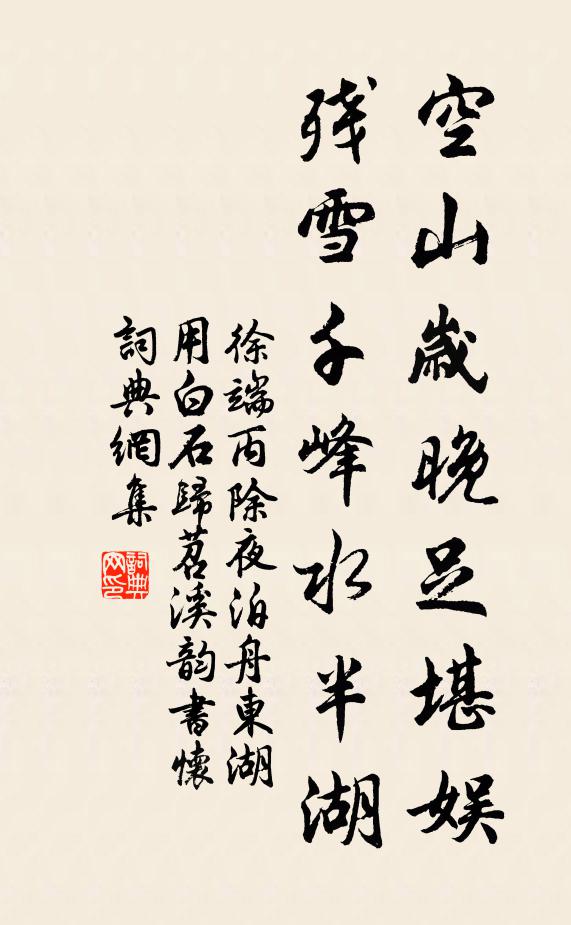 空山歲晚足堪娛
残雪千峰水半湖
徐端丙除夜泊舟東湖
用白石歸苕溪韵書懷
詞典網集
詞典
网印